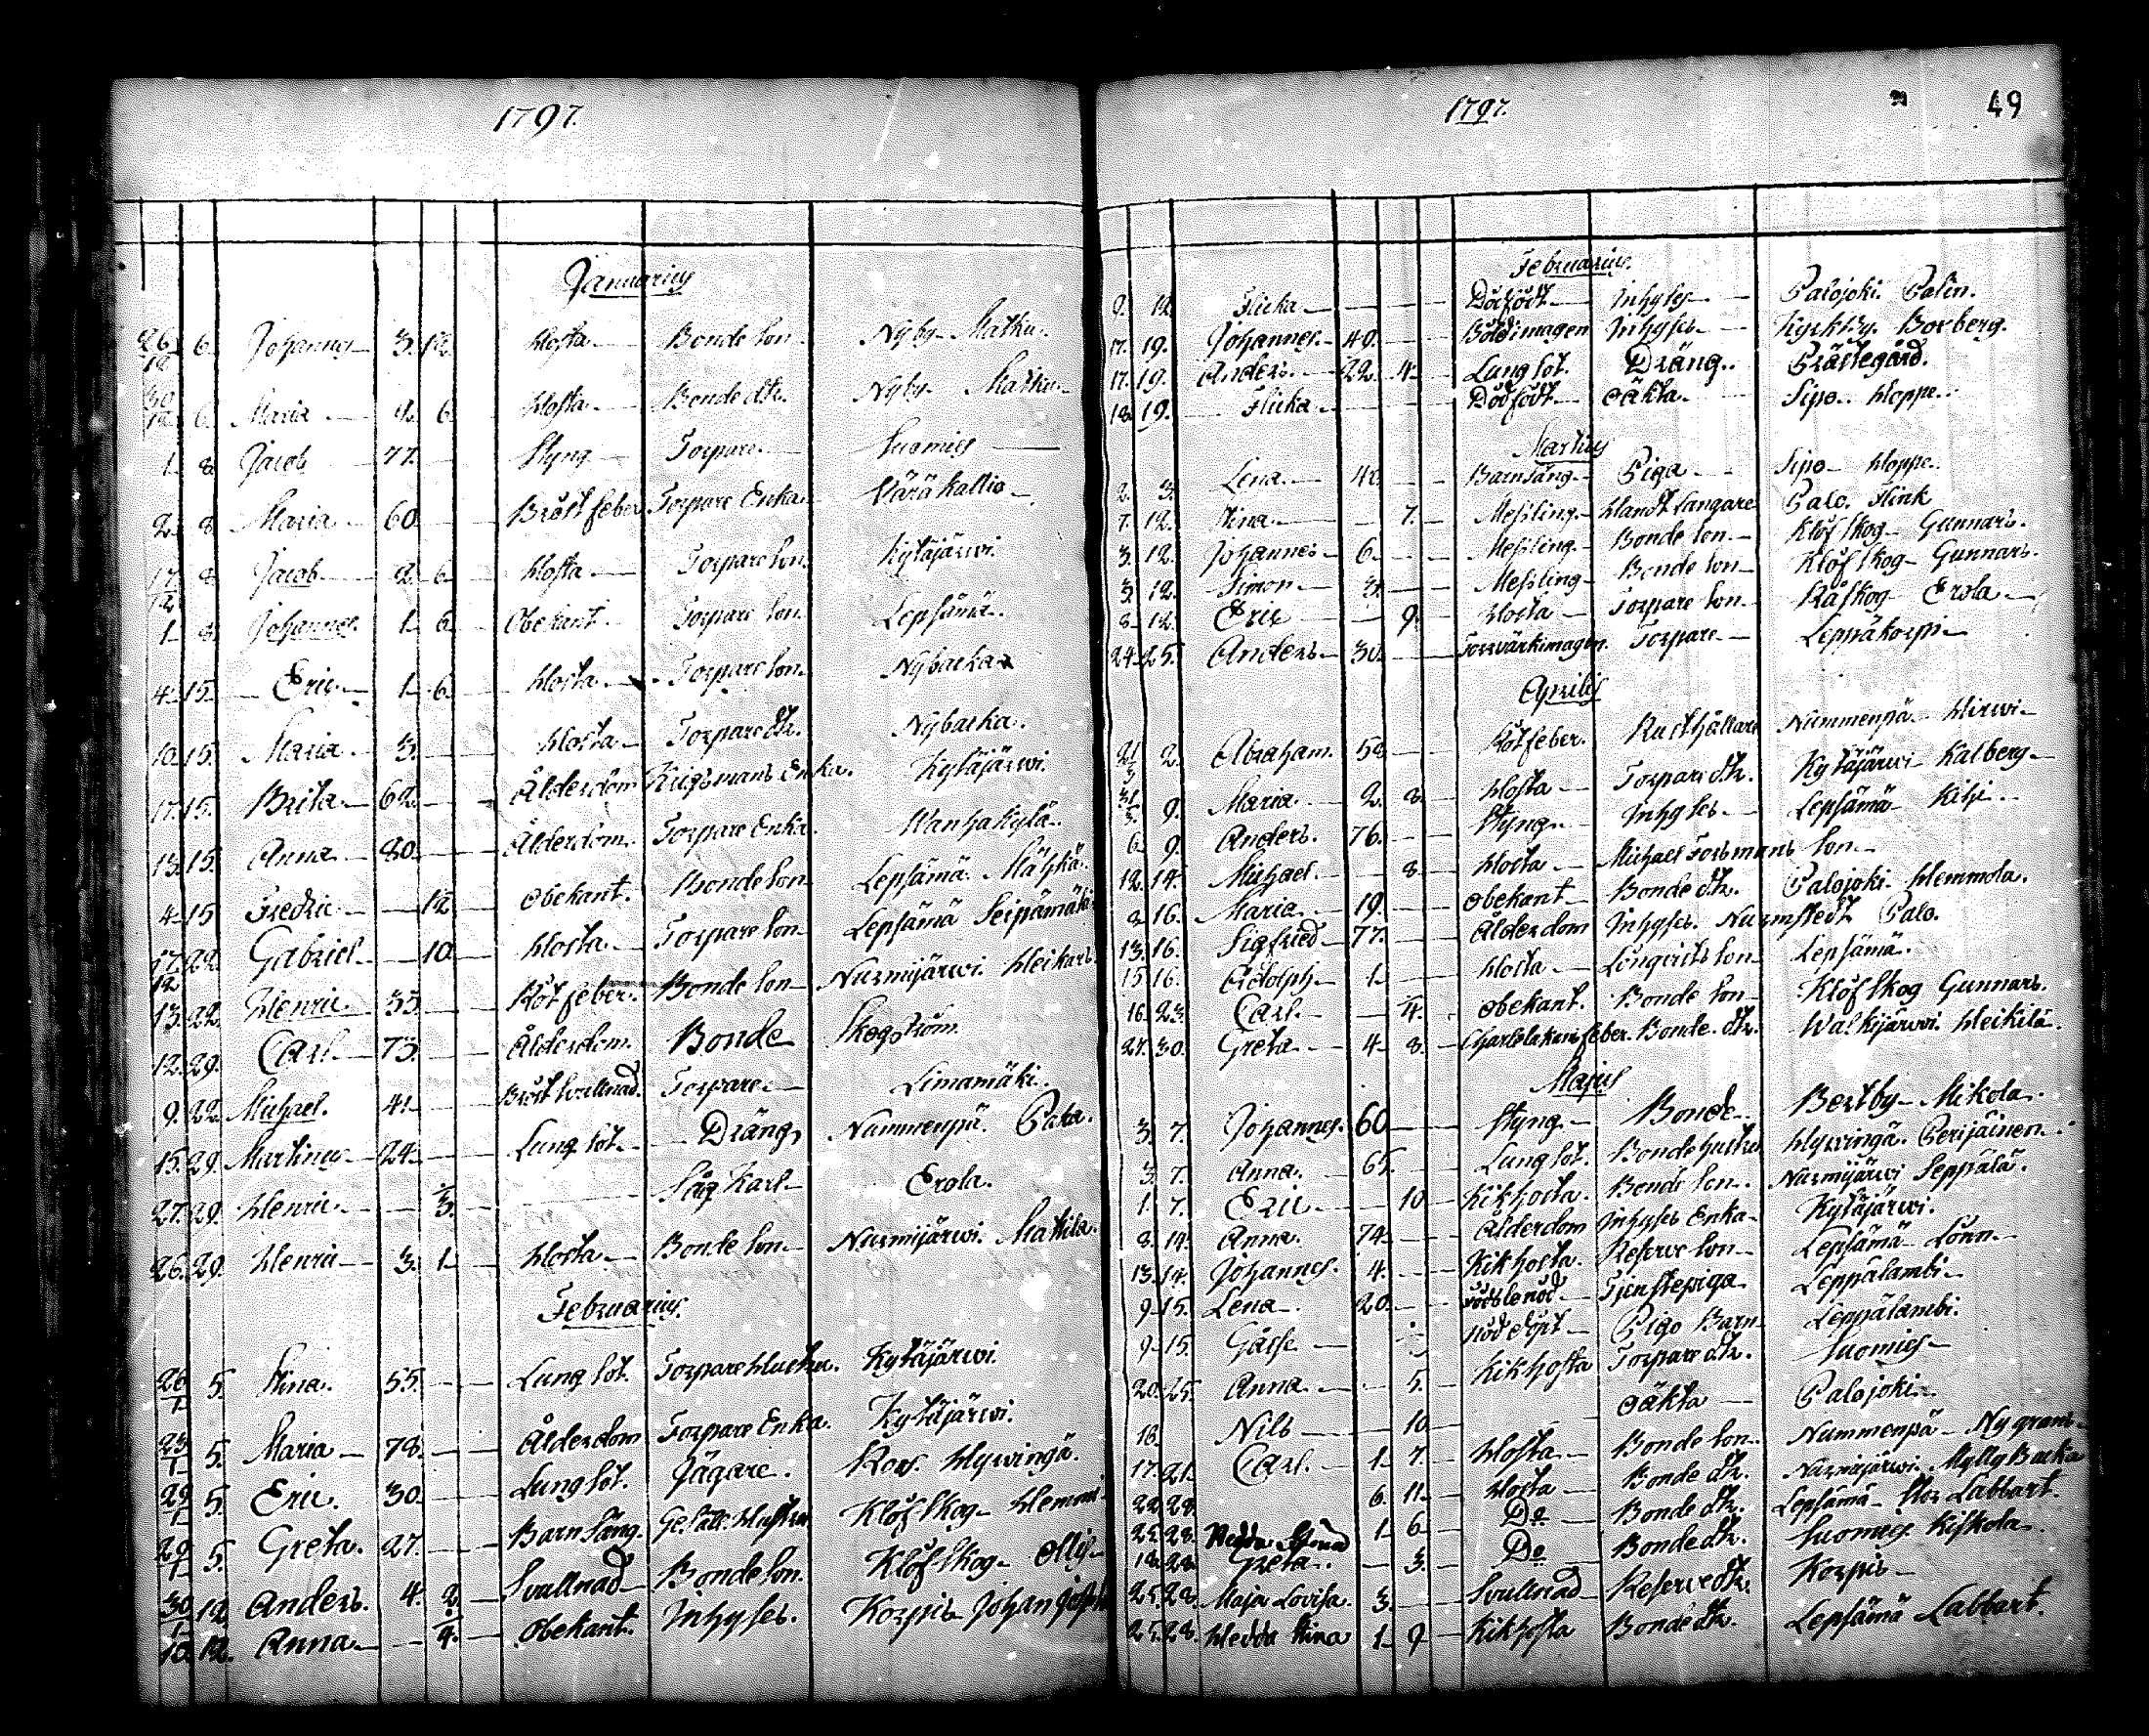 1797.
Januarius
26/12 6. Johannes 3. 12. Hosta Bonde Son Nyby Matku.
30/12 6. Maria 2. 6. Hosta Bonde dtr. Nyby Matku
1 8. Jacob 77. Styng Torpare Suomies
2 8 Maria 60 Bröst feber Torpare Enka Wäräkallio
17/12 8 Jacob 2. 6 Hosta Torpare Son Kytäjärwi
1 8. Johannes 1 6 Obekant Torpare Son. Lepsämä
4 15. Eric 1 6 Hosta Torpare Son Nybacka
10 15. Maria 3. Hosta Torpare dtr. Nybacka.
17. 15. Brita 62 Ålderdom Krigsmans Enka. Kytäjärwi.
13. 15. Anna 80. Ålderdom. Torpare Enka. Wanhakylä.
4 15 Fredric 12 Obekant. Bonde Son Lepsämä
17/12 22. Gabriel 10. Hosta. Torpare Son Lepsämä Seipämäki
13. 22. Henric 35. Rötfeber. Bonde Son Nurmijärwi. Heikars
12. 29. Carl 75 Ålderdom. Bonde Skogström.
9. 22. Michael. 41. Bröst Svullnad. Torpare Limamäki.
15. 29. Martinus 24. Lung Sot. Dräng Nummenpä.
27. 29. Henric 3. Såg Karl Erola.
26. 29. Henric 3. 1 Hosta Bonde Son Nurmijärwi. Mattila.
Februarius.
26/1 5. Stina. 55. Lung Sot. Torpare Hustru. Kytäjärwi.
23/1 5. Maria 78. Ålderdom Torpare Enka. Kytäjärwi.
29/1 5. Eric. 30. Lung Sot. Jägare. Hywingä.
29/1 5. Greta. 27. Barn Säng Hustru Klöfskog
30/1 12. Anders. 4. 2. Svullnad Bonde Son. Klöfskog Ollis
10. 12. Anna 4. Obekant. Inhyses. Korpis Johan
1797. 49
Februarius.
9. 12. Flicka Dödfödt Inhyses Palojoki Palin.
17. 19. Johannes 49. Inhyses Kyrkby. Borberg.
17. 19. Anders 22. 4. Lung Sot. Dräng. Prästegård.
18 19. Flicka Dödfödt Oäkta Sipo Hoppe.
Martius
2. 3. Lena 40. Barnsäng Piga Sipo Hoppe.
7. 12. Stina 7. Messling Handtlangare Palo. Flink
3. 12. Johannes 6. Messling Bonde Son Klöfskog Gunnars.
3. 12. Simon 3. Messling Bonde Son Klöfskog Gunnars.
8. 12. Eric 9. Hosta Torpare Son Råskog Erola
24 25. Anders 30. Torpare Leppäkorpi
Aprilis
21/3 2. Abraham. 58 Rötfeber. Rusthållare Nummenpä Hirwi
31/3 9. Maria 2. 8. Hosta Torpare dtr. Kytäjärwi Kalberg
6. 9. Anders. 76. Styng Inhyses Lepsämä
12. 14. Michael. 8. Hosta Michael Forsmans Son
8. 16. Maria 19. Obekant Bonde dtr. Palojoki Hemmola.
13. 16. Sigfried 77. Ålderdom Inhyses. Nurmstedt Palo.
15 16. Adolph 1. Hosta Lönqvists Son Lepsämä.
16. 23. Carl. 4. Obekant. Bonde Son Klöfskog Gunnars.
27. 30. Greta 4 8. Charlakans feber. Bonde dtr. Walkijärwi Heikilä.
Majus
3. 7. Johannes. 60 Styng. Bonde Bertby Mikola.
3. 7. Anna. 65. Lung Sot. Bonde hustru Hywingä.
1. 7. Eric 10 Kikhosta. Bonde Son. Nurmijärwi Seppälä.
8. 14. Anna. 74. Ålderdom Inhyses Enka Kytäjärwi.
13. 14. Johannes. 4. Kikhosta. Reserve Son Lepsämä Lönn
9 15. Lena 20. Tjenstepiga Leppälambi
9 15. Gosse Nöddöpt Pigo Barn Leppälambi.
20. 25. Anna 5. Kikhosta Torpare dtr. Suomies
18. Nils 10. Oäkta Palojoki
17. 21. Carl. 1 7. Hosta Bonde Son. Nummenpä Nygrans
22. 28. 6. 11. Hosta Bonde dtr. Nurmijärwi. Mylly Backa
25. 28. 1 6 Do Bonde dtr. Lepsämä Stor Labbart.
18. 28 Greta. 3. Do Bonde dtr. Suomies Kiskola
25. 28. Maja Lovisa. 3. Svullnad Reserve dtr. Korpis
25. 28. Hedda Stina 1 9 Kikhosta Bonde dtr. Lepsämä Labbart.